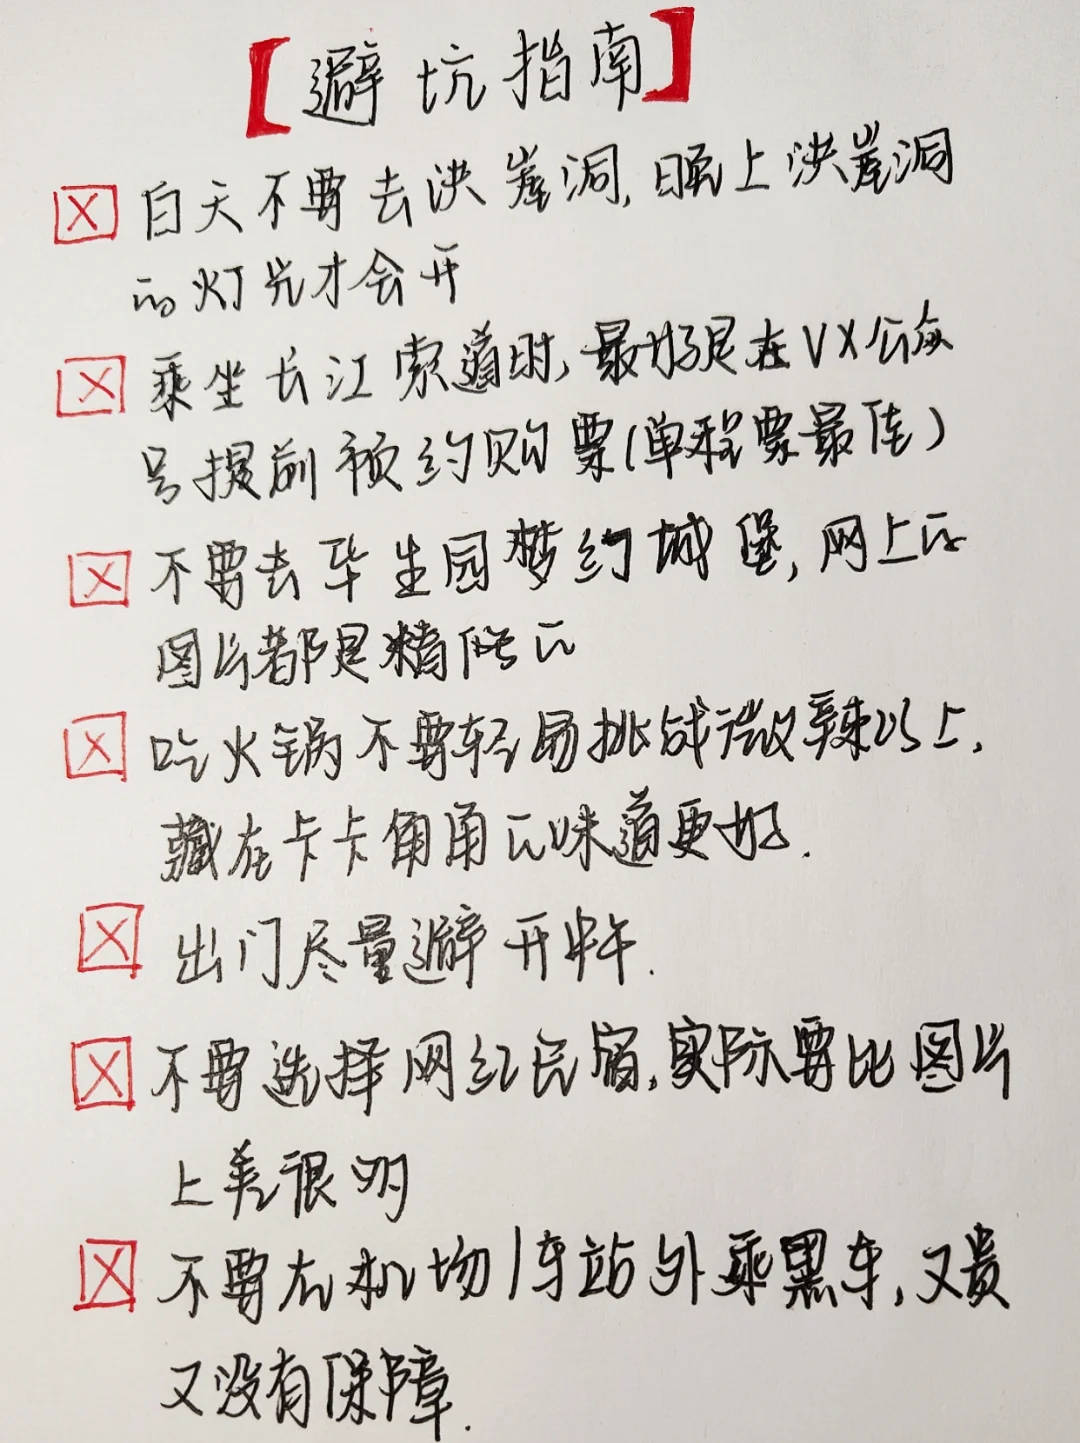 【避坑指南】
白天不要去洪崖洞,晚上洪崖洞
的灯光才会开
乘坐长江索道时,最好是在VX公众
号提前预约购票(单程票最佳)
不要去毕生园梦幻城堡,网上的
图片都是精修的
吃火锅不要轻易挑战微辣以上,
藏在卡卡角角的味道更好.
出门尽量避开中午.
不要选择网红民宿,实际要比图片
上差很多
不要在机场/车站外乘黑车,又贵
又没有保障.